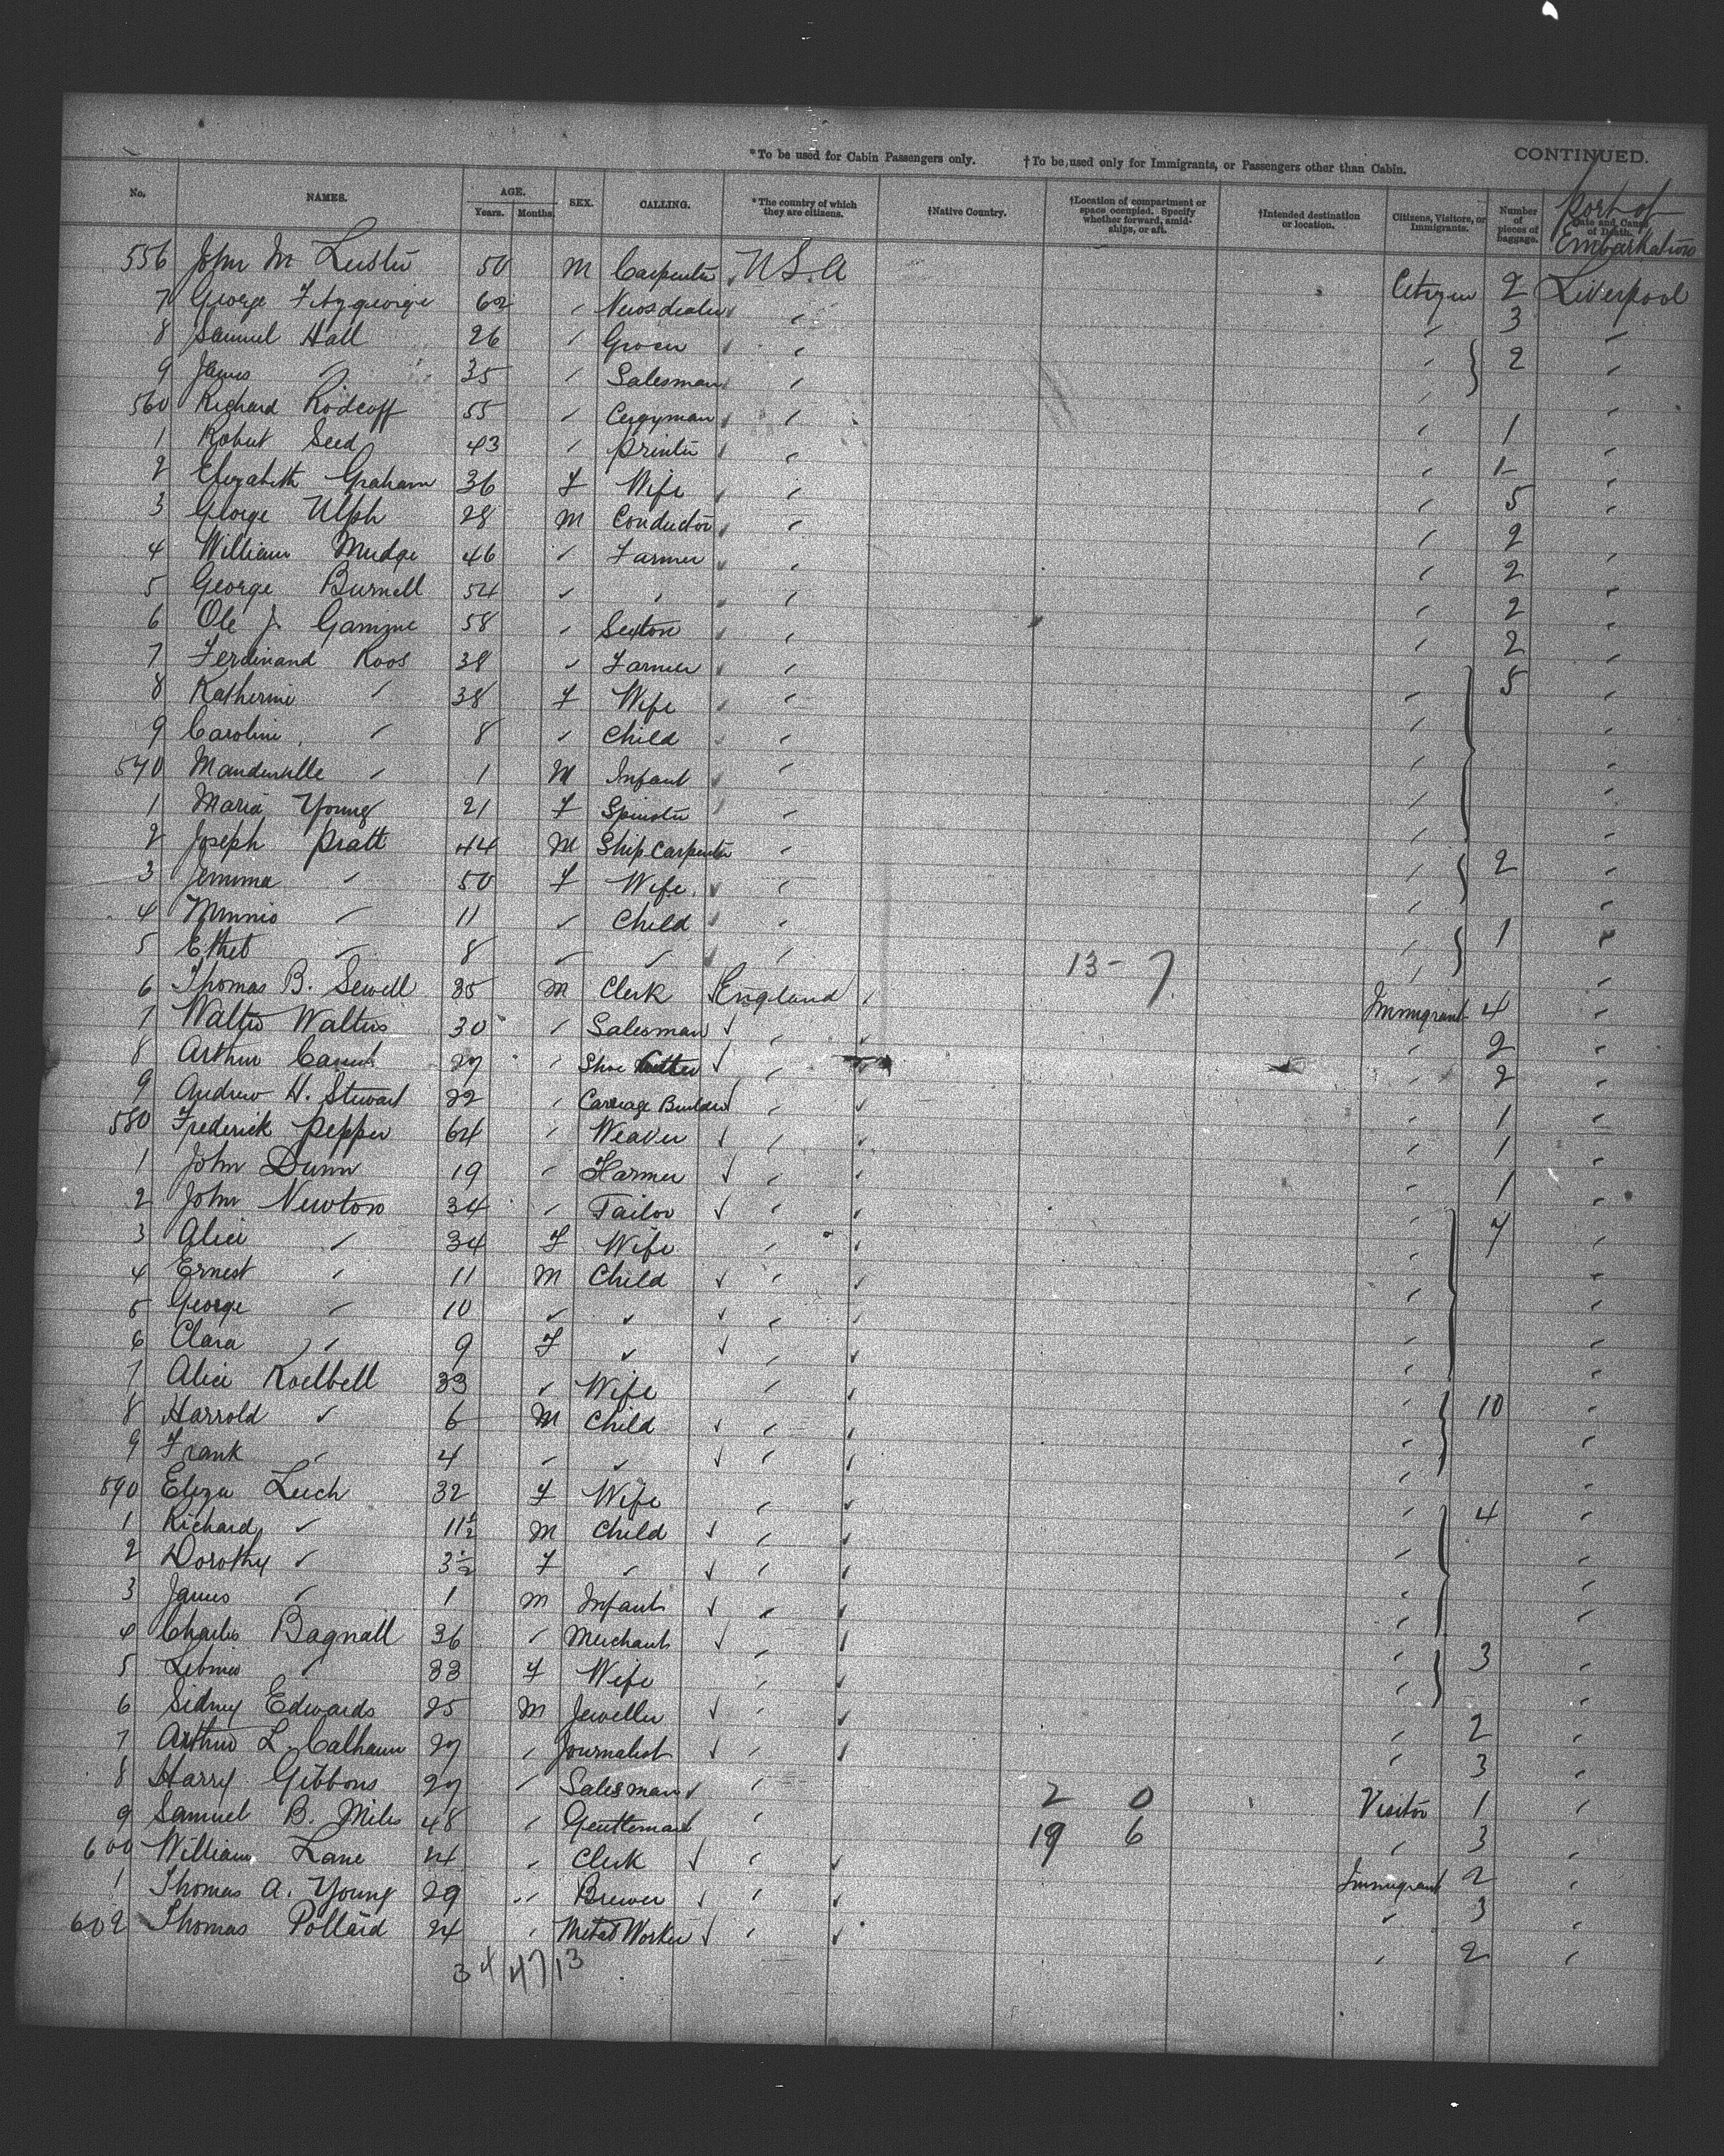 *To be used for Cabin Passengers only. †To be used only for Immigrants, or Passengers other than Cabin. CONTINUED.
No. NAMES. AGE. Years. Months. SEX. CALLING. *The country of which they are citizens. †Native Country. †Location of compartment or space occupied. Specify whether forward, amidships, or aft. †Intended destination or location. Citizens, Visitors, or Immigrants. Number of pieces of baggage. Date and Cause of Death. Port of Embarkation
556 John M 50 M Carpenter U.S.A Citizen 2 Liverpool
7 George Fitzgeorge 62 " Newsdealer " " 3 "
8 Samuel Hall 26 " Grocer " " 2 "
9 James " 35 " Salesman " " "
560 Richard 55 " Cergyman " " 1 "
1 Robert Seed 43 " Printer " " 1 "
2 Elizabeth Graham 36 F Wife " " 5 "
3 George Ulph 28 M Conductor " " 2 "
4 William Mudge 46 " Farmer " " 2 "
5 George Burnell 54 " " " " 2 "
6 Ole J. 58 " Sexton " " 2 "
7 Ferdinand Koos 38 " Farmer " " 5 "
8 Katherine " 38 F Wife " " "
9 Caroline " 8 " Child " " "
570 Manderville " 1 M Infant " " "
1 Maria Young 21 F Spinster " " "
2 Joseph Pratt 44 M Ship Carpenter " " 2 "
3 Jemima " 50 F Wife " " "
4 Minnie " 11 " Child " " 1 "
5 Ethel " 8 " " " 13 - 7 " "
6 Thomas B. Sewell 35 M Clerk England " Immigrant 4 "
7 Walter Walters 30 " Salesman " " " 2 "
8 Arthur 27 " Shoe Cutter " " " 2 "
9 Andrew H. Stewart 22 " Carriage Builder " " " 1 "
580 Frederick Pepper 64 " Weaver " " " 1 "
1 John Dunn 19 " Farmer " " " 1 "
2 John Newton 34 " Tailor " " " 7 "
3 Alice " 34 F Wife " " " "
4 Ernest " 11 M Child " " " "
5 George " 10 " " " " " "
6 Clara " 9 F " " " " "
7 Alice Koelbell 33 " Wife " " " 10 "
8 Harrold " 6 M Child " " " "
9 Frank " 4 " " " " " "
590 Eliza Leech 32 F Wife " " " 4 "
1 Richard " 11½ M Child " " " "
2 Dorothy " 3½ F " " " " "
3 James " 1 M Infant " " " "
4 Charles Bagnall 36 " Merchant " " " 3 "
5 " 33 F Wife " " " "
6 Sidney Edwards 25 M Jeweller " " " 2 "
7 Arthur L. Calhaun 27 " Journalist " " " 3 "
8 Harry Gibbons 27 " Salesman " 2 0 Visitor 1 "
9 Samuel B. Miles 48 " Gentleman " 19 6 " 3 "
600 William Lane 24 " Clerk " " Immigrant 2 "
1 Thomas A. Young 29 " Brewer " " " 3 "
602 Thomas Pollard 24 " Metal Worker " " " 2 "
34 47 13